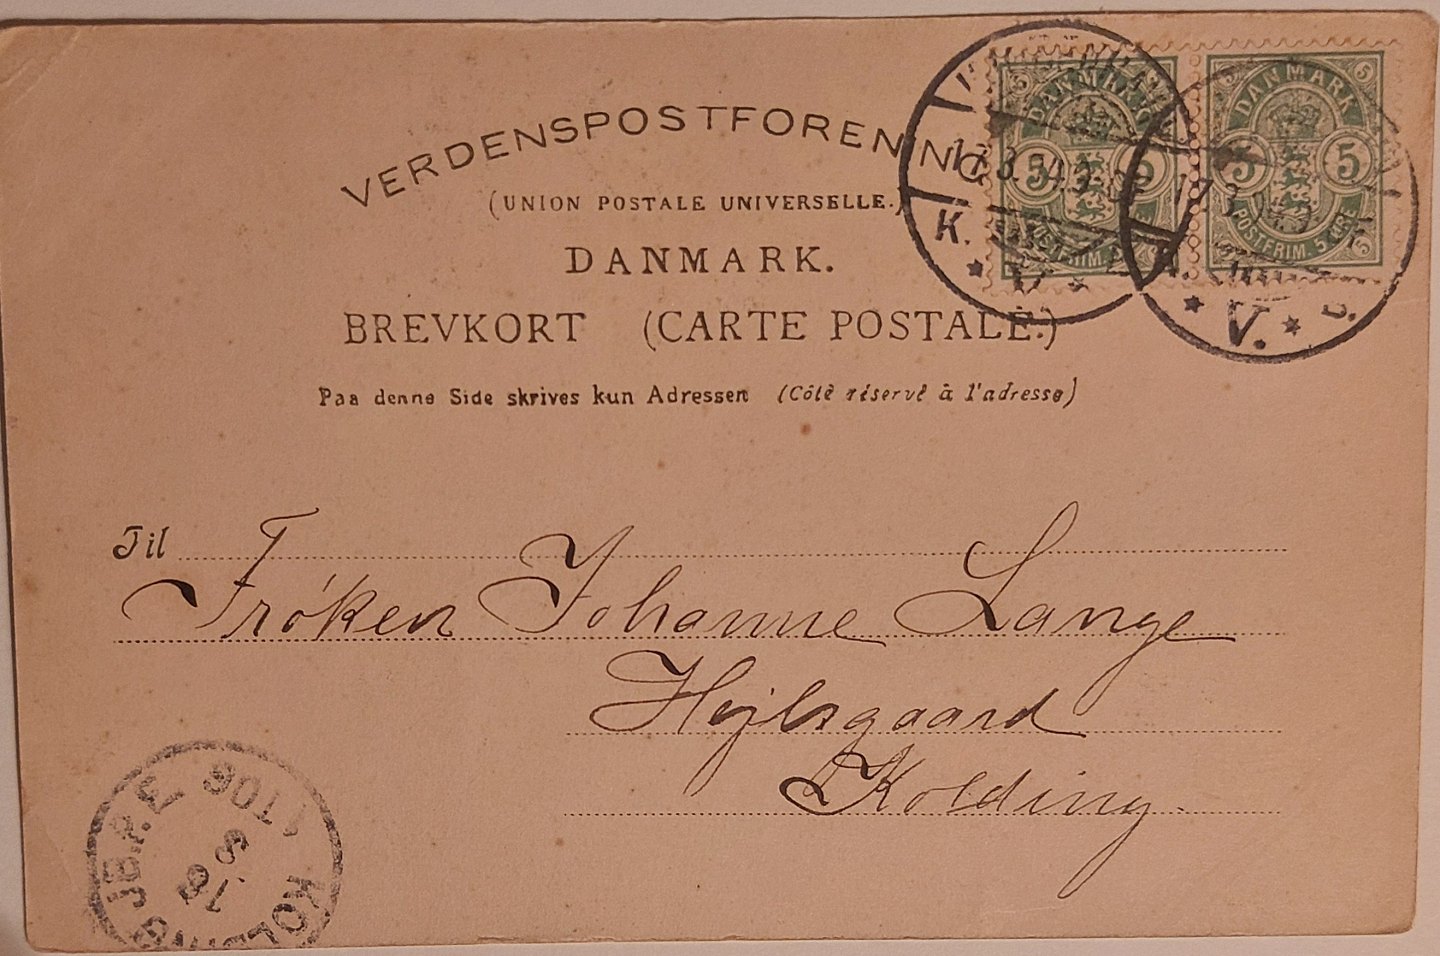 VERDENSPOSTFORENING
(UNION POSTALE UNIVERSELLE.)
DANMARK.
BREVKORT (CARTE POSTALE.)
Paa denne Side skrives kun Adressen (Côté réservé à l'adresse)
DANMARK
5 5
POSTFRIM. 5 ØRE
DANMARK
5 5
POSTFRIM. 5 ØRE
17.3.04.
K.
V.
17.3
K.
V. B.
Til
Frøken Johanne Lange
Hejlsgaard
Kolding.
KOLDING JB.P.E.
18
3